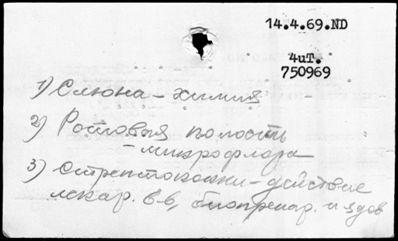 14.4.69.ND
4иT.
750969
1) Слюна - химия
2) Ротовыя полость
- микрофлора
3) Стрептококки - действие
лекар. в-в, биопрепар. и ядов